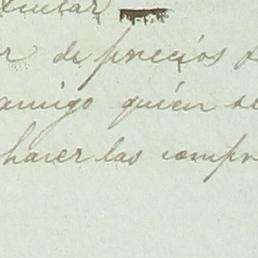 r de precios
amigo quién se
hacer las compr